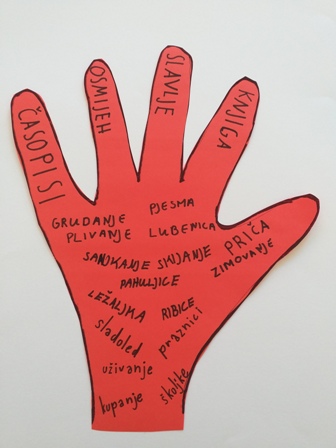 ČASOPISI
OSMIJEH
SLAVLJE
KNJIGA
PRIČA
GRUDANJE
PJESMA
PLIVANJE
LUBENICA
SANJKANJE SKIJANJE
ZIMOVANJE
PAHULJICE
LEŽALJKA
RIBICE
sladoled
praznici
uživanje
kupanje
školjke